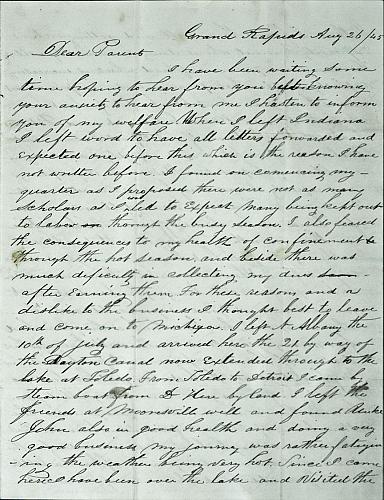 Grand Rapids Aug 26/45
Dear Parents
I have been waiting some
time hoping to hear from you but knowing
your anxiety to hear from me I hasten to inform
you of my welfare When I left Indiana
I left word to have all letters forwarded and
expected one before this which is the reason I have
not written before. I found on comencing my
quarter as I proposed there were not as many
Scholars as I led to Expect many being kept out
to labor through the busy season. I also feared
the consequences to my health of confinement
through the hot season, and beside there was
much dificulty in collecting my dues
after Earning them. For these reasons and a
dislike to the business I thought best to leave
and come on to Michigan. I left N Albany the
10th of July and arrived here the 21 by way of
the Dayton Canal now Extended through to the
lake at Toledo. From Toledo to Detroit I came by
steam boat from D here by land I left the
friends at Moonsvill well and found
John also in good health and doing a very
good business my journey was rather fatigu
-ing the weather being very hot. Since I came
here I have been over the lake and Visited the